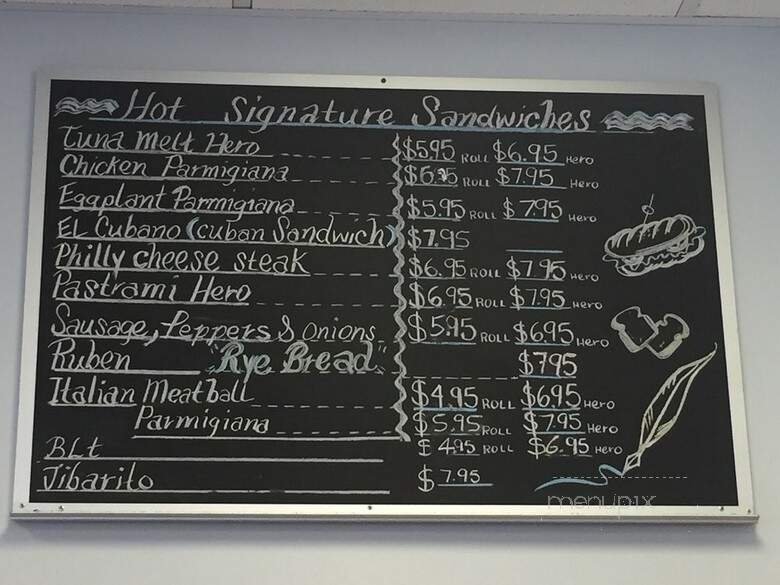 Hot Signature Sandwiches
Tuna Melt Hero $5.95 Roll $6.95 Hero
Chicken Parmigiana Roll $7.95 Hero
Eggplant Parmigiana $5.95 Roll $7.95 Hero
EL Cubano (cuban Sandwich) $7.95
Philly cheese steak $6.95 Roll $7.95 Hero
Pastrami Hero $6.95 Roll $7.95 Hero
Sausage, Peppers & Onions $5.95 Roll $6.95 Hero
Ruben "Rye Bread" $7.95
Italian Meatball $4.95 Roll $6.95 Hero
Parmigiana $5.95 Roll $7.95 Hero
BLt $4.95 Roll $6.95 Hero
Jibarito $7.95
menupix